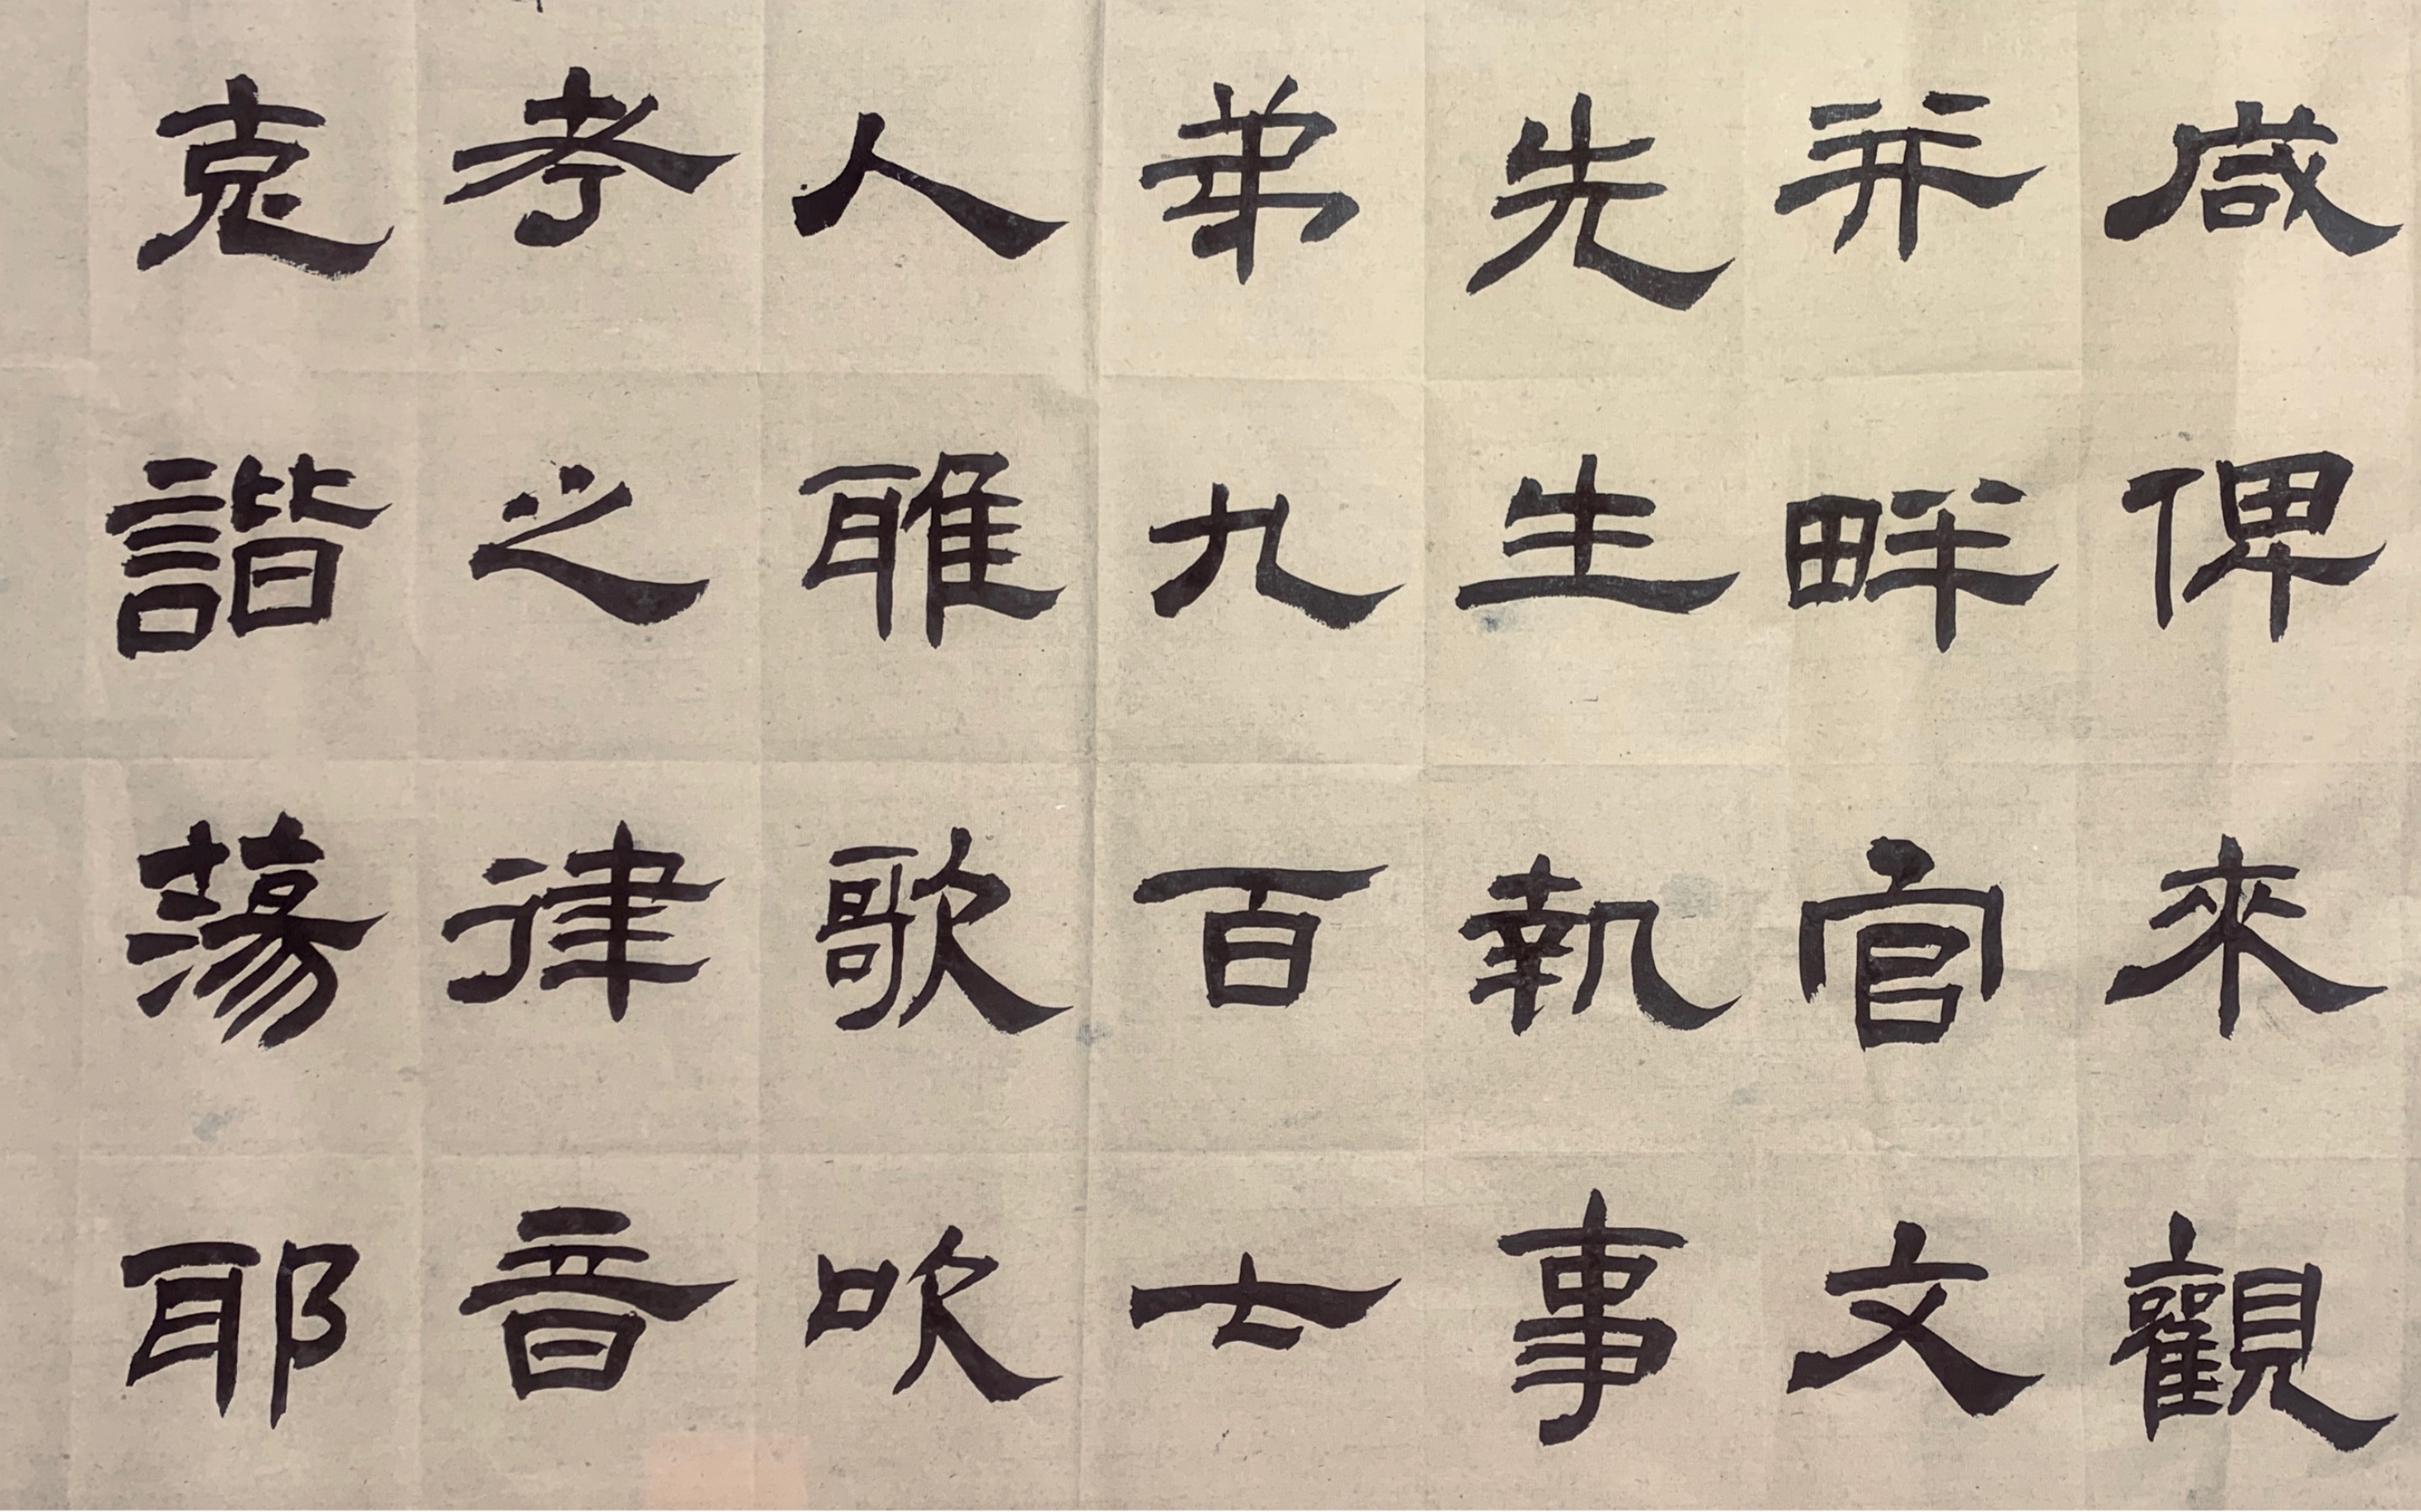 咸俾來觀
并畔官文
先生執事
弟九百七
人雅歌吹
考之律音
克諧蕩邪